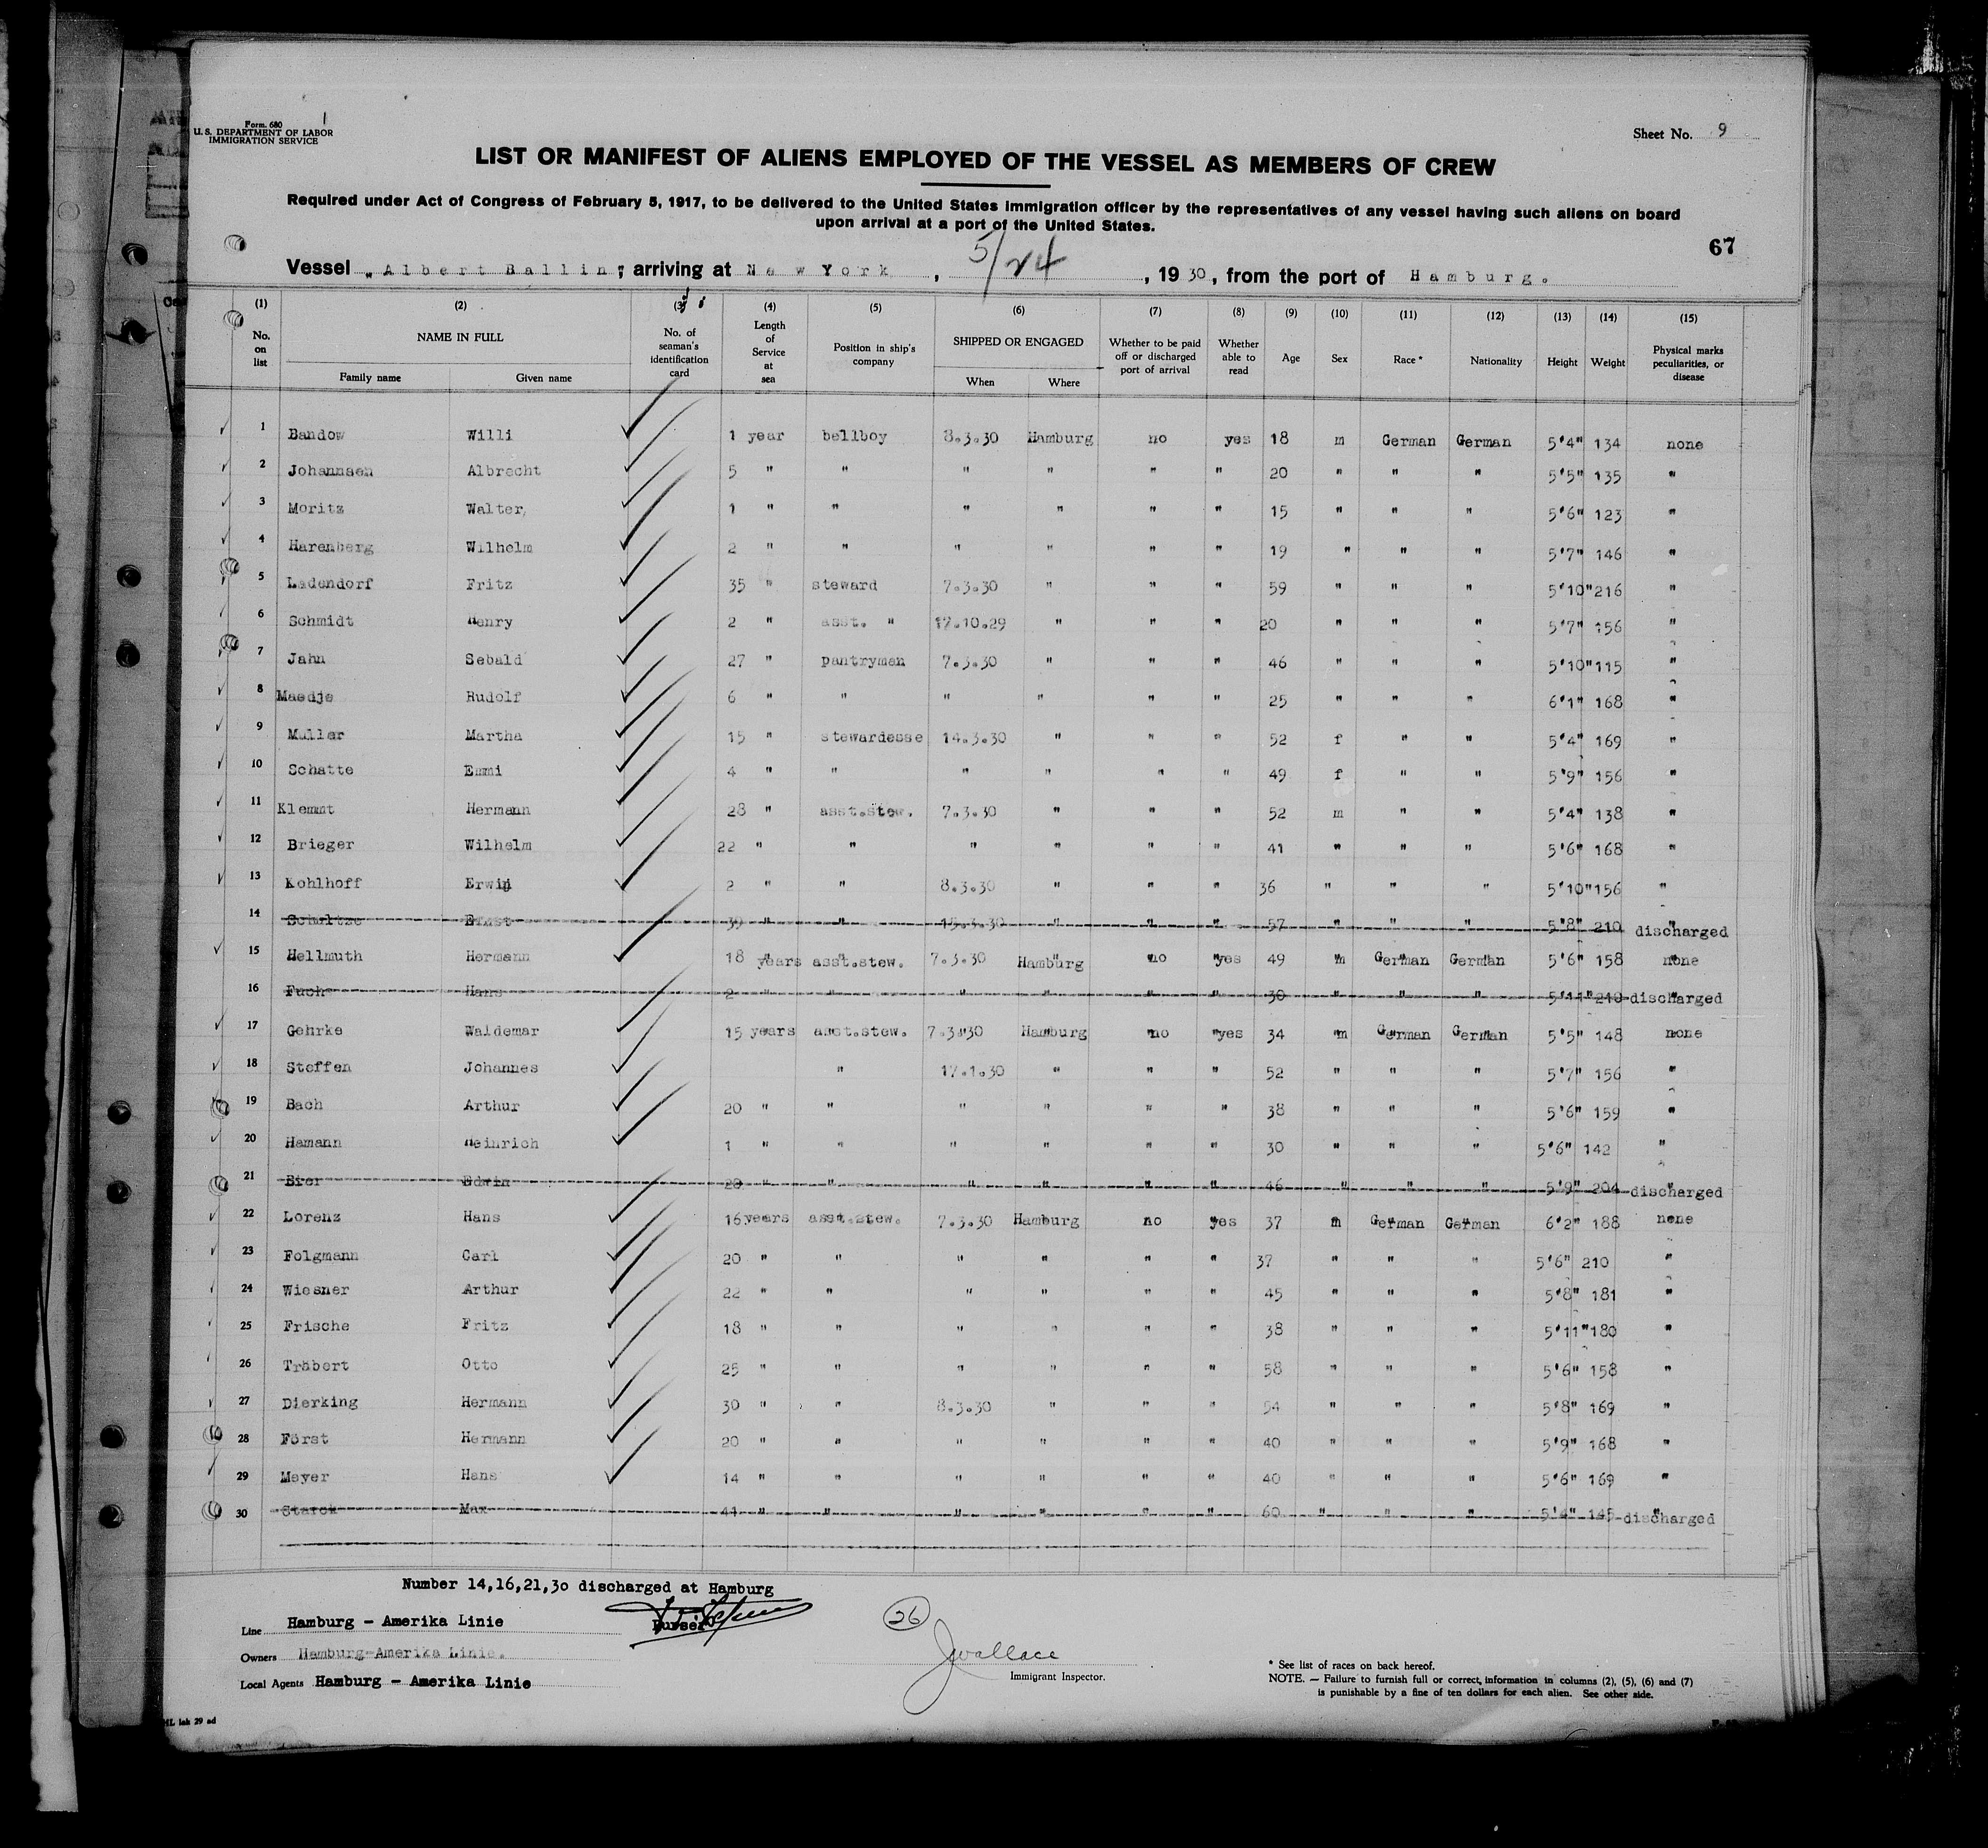 Form. 680
U. S. DEPARTMENT OF LABOR
IMMIGRATION SERVICE
Sheet No. 9
LIST OR MANIFEST OF ALIENS EMPLOYED OF THE VESSEL AS MEMBERS OF CREW
Required under Act of Congress of February 5, 1917, to be delivered to the United States immigration officer by the representatives of any vessel having such aliens on board
upon arrival at a port of the United States.
67
Vessel „Albert Ballin; arriving at New York, 5/24, 1930, from the port of Hamburg.
(1) (2) (3) (4) (5) (6) (7) (8) (9) (10) (11) (12) (13) (14) (15)
No. on list NAME IN FULL Family name Given name No. of seaman's identification card Length of Service at sea Position in ship's company SHIPPED OR ENGAGED When Where Whether to be paid off or discharged port of arrival Whether able to read Age Sex Race * Nationality Height Weight Physical marks peculiarities, or disease
1 Bandow Willi 1 year bellboy 8.3.30 Hamburg no yes 18 m German German 5'4" 134 none
2 Johannsen Albrecht 5 " " " " " " 20 " " " 5'5" 135 "
3 Moritz Walter, 1 " " " " " " 15 " " " 5'6" 123 "
4 Harenberg Wilhelm 2 " " " " " " 19 " " " 5'7" 146 "
5 Ladendorf Fritz 35 " steward 7.3.30 " " " 59 " " " 5'10" 216 "
6 Schmidt Henry 2 " asst. " 17.10.29 " " " 20 " " " 5'7" 156 "
7 Jahn Sebald 27 " pantryman 7.3.30 " " " 46 " " " 5'10" 115 "
8 Maedje Rudolf 6 " " " " " " 25 " " " 6'1" 168 "
9 Müller Martha 15 " stewardesse 14.3.30 " " " 52 f " " 5'4" 169 "
10 Schatte Emmi 4 " " " " " " 49 f " " 5'9" 156 "
11 Klemmt Hermann 28 " asst.stew. 7.3.30 " " " 52 m " " 5'4" 138 "
12 Brieger Wilhelm 22 " " " " " " 41 " " " 5'6" 168 "
13 Kohlhoff Erwin 2 " " 8.3.30 " " " 36 " " " 5'10" 156 "
14 Schultze Ernst 39 " " 15.3.30 " " " 57 " " " 5'8" 210 " discharged
15 Hellmuth Hermann 18 years asst.stew. 7.3.30 Hamburg no yes 49 m German German 5'6" 158 none
16 Fuchs Hans 2 " " " " " " 30 " " " 5'11" 210 discharged
17 Gehrke Waldemar 15 years asst.stew. 7.3.30 Hamburg no yes 34 m German German 5'5" 148 none
18 Steffen Johannes " 17.1.30 " " " 52 " " " 5'7" 156 "
19 Bach Arthur 20 " " " " " " 38 " " " 5'6" 159 "
20 Hamann Heinrich 1 " " " " " " 30 " " " 5'6" 142 "
21 Bier Edwin 20 " " " " " " 46 " " " 5'9" 204 discharged
22 Lorenz Hans 16 years asst.stew. 7.3.30 Hamburg no yes 37 m German German 6'2" 188 none
23 Folgmann Carl 20 " " " " " " 37 " " " 5'6" 210 "
24 Wiesner Arthur 22 " " " " " " 45 " " " 5'8" 181 "
25 Frische Fritz 18 " " " " " " 38 " " " 5'11" 180 "
26 Träbert Otto 25 " " " " " " 58 " " " 5'6" 158 "
27 Dierking Hermann 30 " " 8.3.30 " " " 54 " " " 5'8" 169 "
28 Först Hermann 20 " " " " " " 40 " " " 5'9" 168 "
29 Meyer Hans 14 " " " " " " 40 " " " 5'6" 169 "
30 Starck Max 41 " " " " " " 60 " " " 5'4" 145 discharged
Number 14,16,21,30 discharged at Hamburg
Line Hamburg - Amerika Linie
Purser
26
Owners Hamburg-Amerika Linie.
JWallace
Immigrant Inspector.
Local Agents Hamburg - Amerika Linie
* See list of races on back hereof.
NOTE. — Failure to furnish full or correct, information in columns (2), (5), (6) and (7)
is punishable by a fine of ten dollars for each alien. See other side.